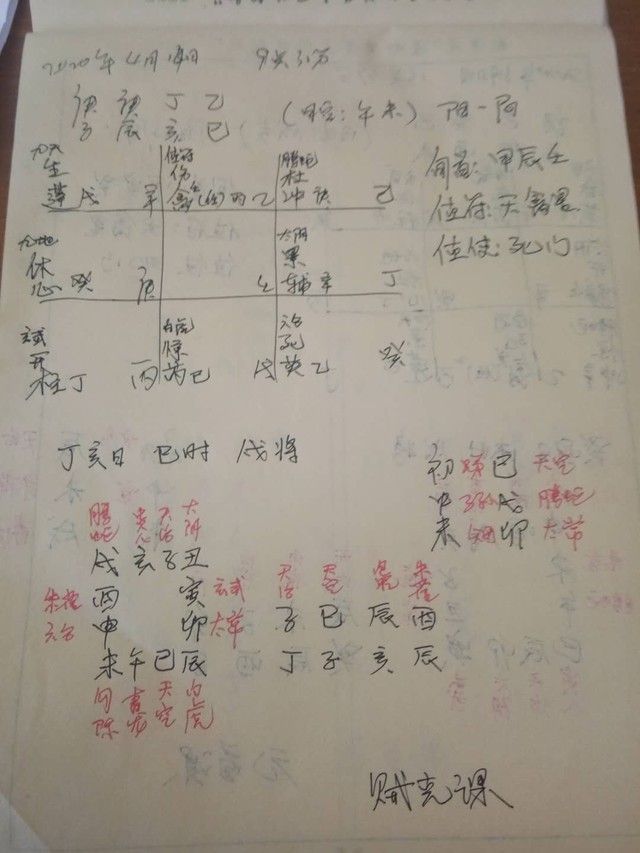 2020年4月14日
庚 庚 丁 乙
子 辰 亥 巳
(日空:午未) 阳一局
旬首:甲辰壬
值符:天禽星
值使:死门
九天 值符 腾蛇
生 伤 杜
蓬 戊 辛 禽 乙 冲 己
九地 太阴
休 景
心 癸 庚 壬 辅 辛 丁
开 惊 死
柱 丁 丙 芮 己 戊 英 乙 癸
丁亥日 巳时 戌将
初 巳 天空
中 子孙 戌 腾蛇
末 卯 太常
腾蛇 贵人 天后 太阴
戌 亥 子 丑
朱雀 酉 寅 玄武 天后 天空 朱雀
六合 申 卯 太常 子 巳 辰 酉
未 午 巳 辰 丁 子 亥 辰
勾陈 青龙 天空 白虎
贼克课